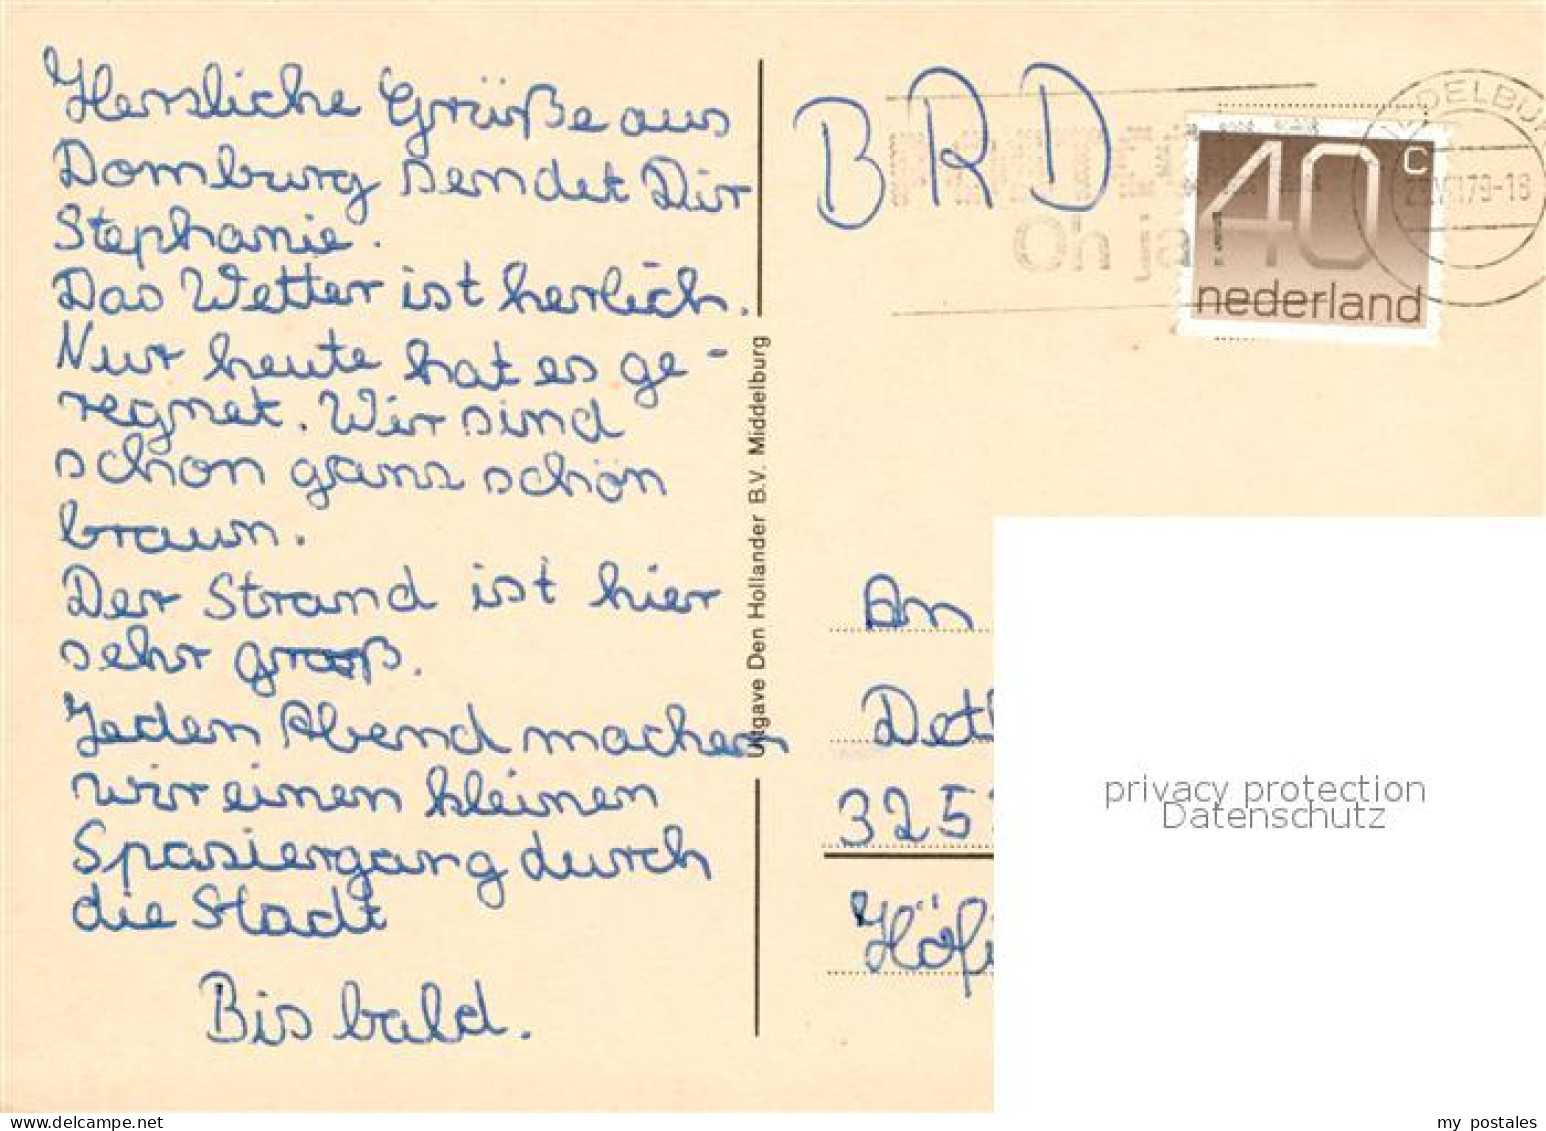 Hersliche Grüße aus
Domburg sendet Dir
Stephanie.
Das Wetter ist herlich.
Nur heute hat es ge-
regnet. Wir sind
schon ganz schön
braun.
Der Strand ist hier
sehr groß.
Jeden Abend machen
wir einen kleinen
Spasiergang durch
die Stadt
Bis bald.
Uitgave Den Hollander B.V. Middelburg
BRD
Oh ja
40 c
nederland
DDELBU
79-18
An
Det
325
Höf
privacy protection
Datenschutz
my postales